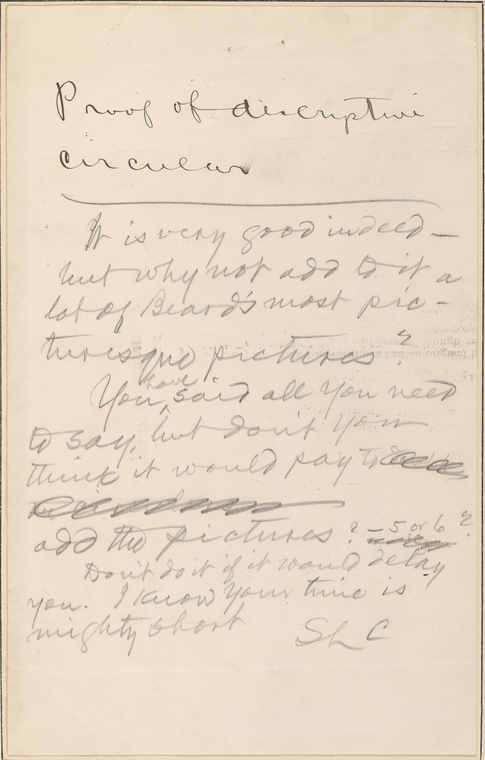 Proof of descriptive
circular
It is very good indeed—
but why not add to it a
lot of Beard's most pic-
turesque pictures?
have
You ^ said all you need
to say, but don't you
think it would pay to
add the pictures? — 5 or 6?
Don't do it if it would delay
you. I know your time is
mighty short.
SLC